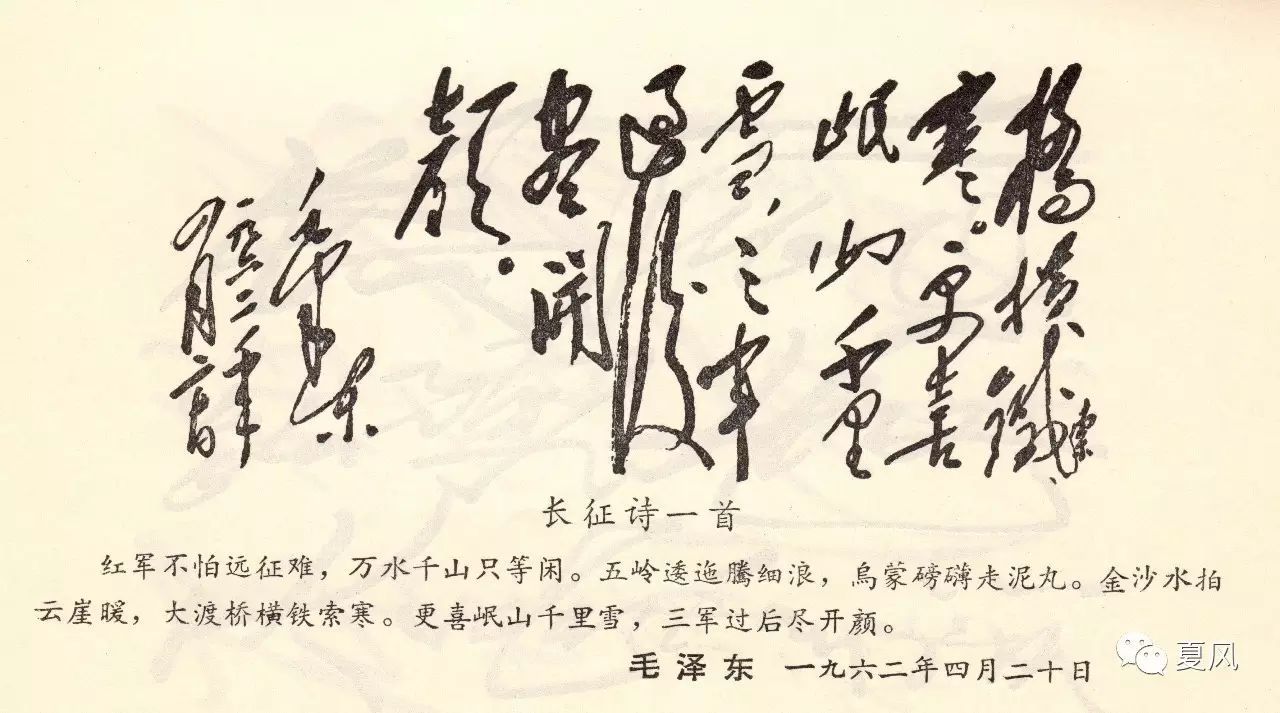 橋横鐵索
寒。更喜
岷山千里
雪，三軍
过後
尽開
顏。
毛泽东
一九六二年
四月廿日
长征诗一首
红军不怕远征难，万水千山只等闲。五岭逶迤腾细浪，烏蒙磅礴走泥丸。金沙水拍
云崖暖，大渡桥横铁索寒。更喜岷山千里雪，三军过后尽开颜。
毛泽东 一九六二年四月二十日
夏风